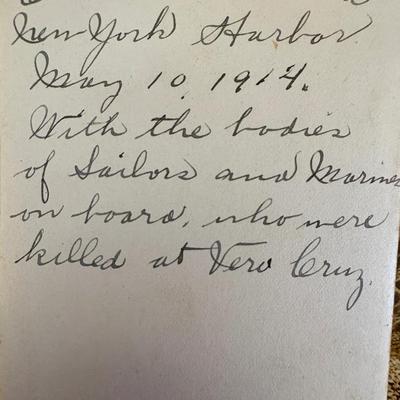 New York Harbor
May 10, 1914.
With the bodies
of Sailors and Marines
on board, who were
killed at Vera Cruz.